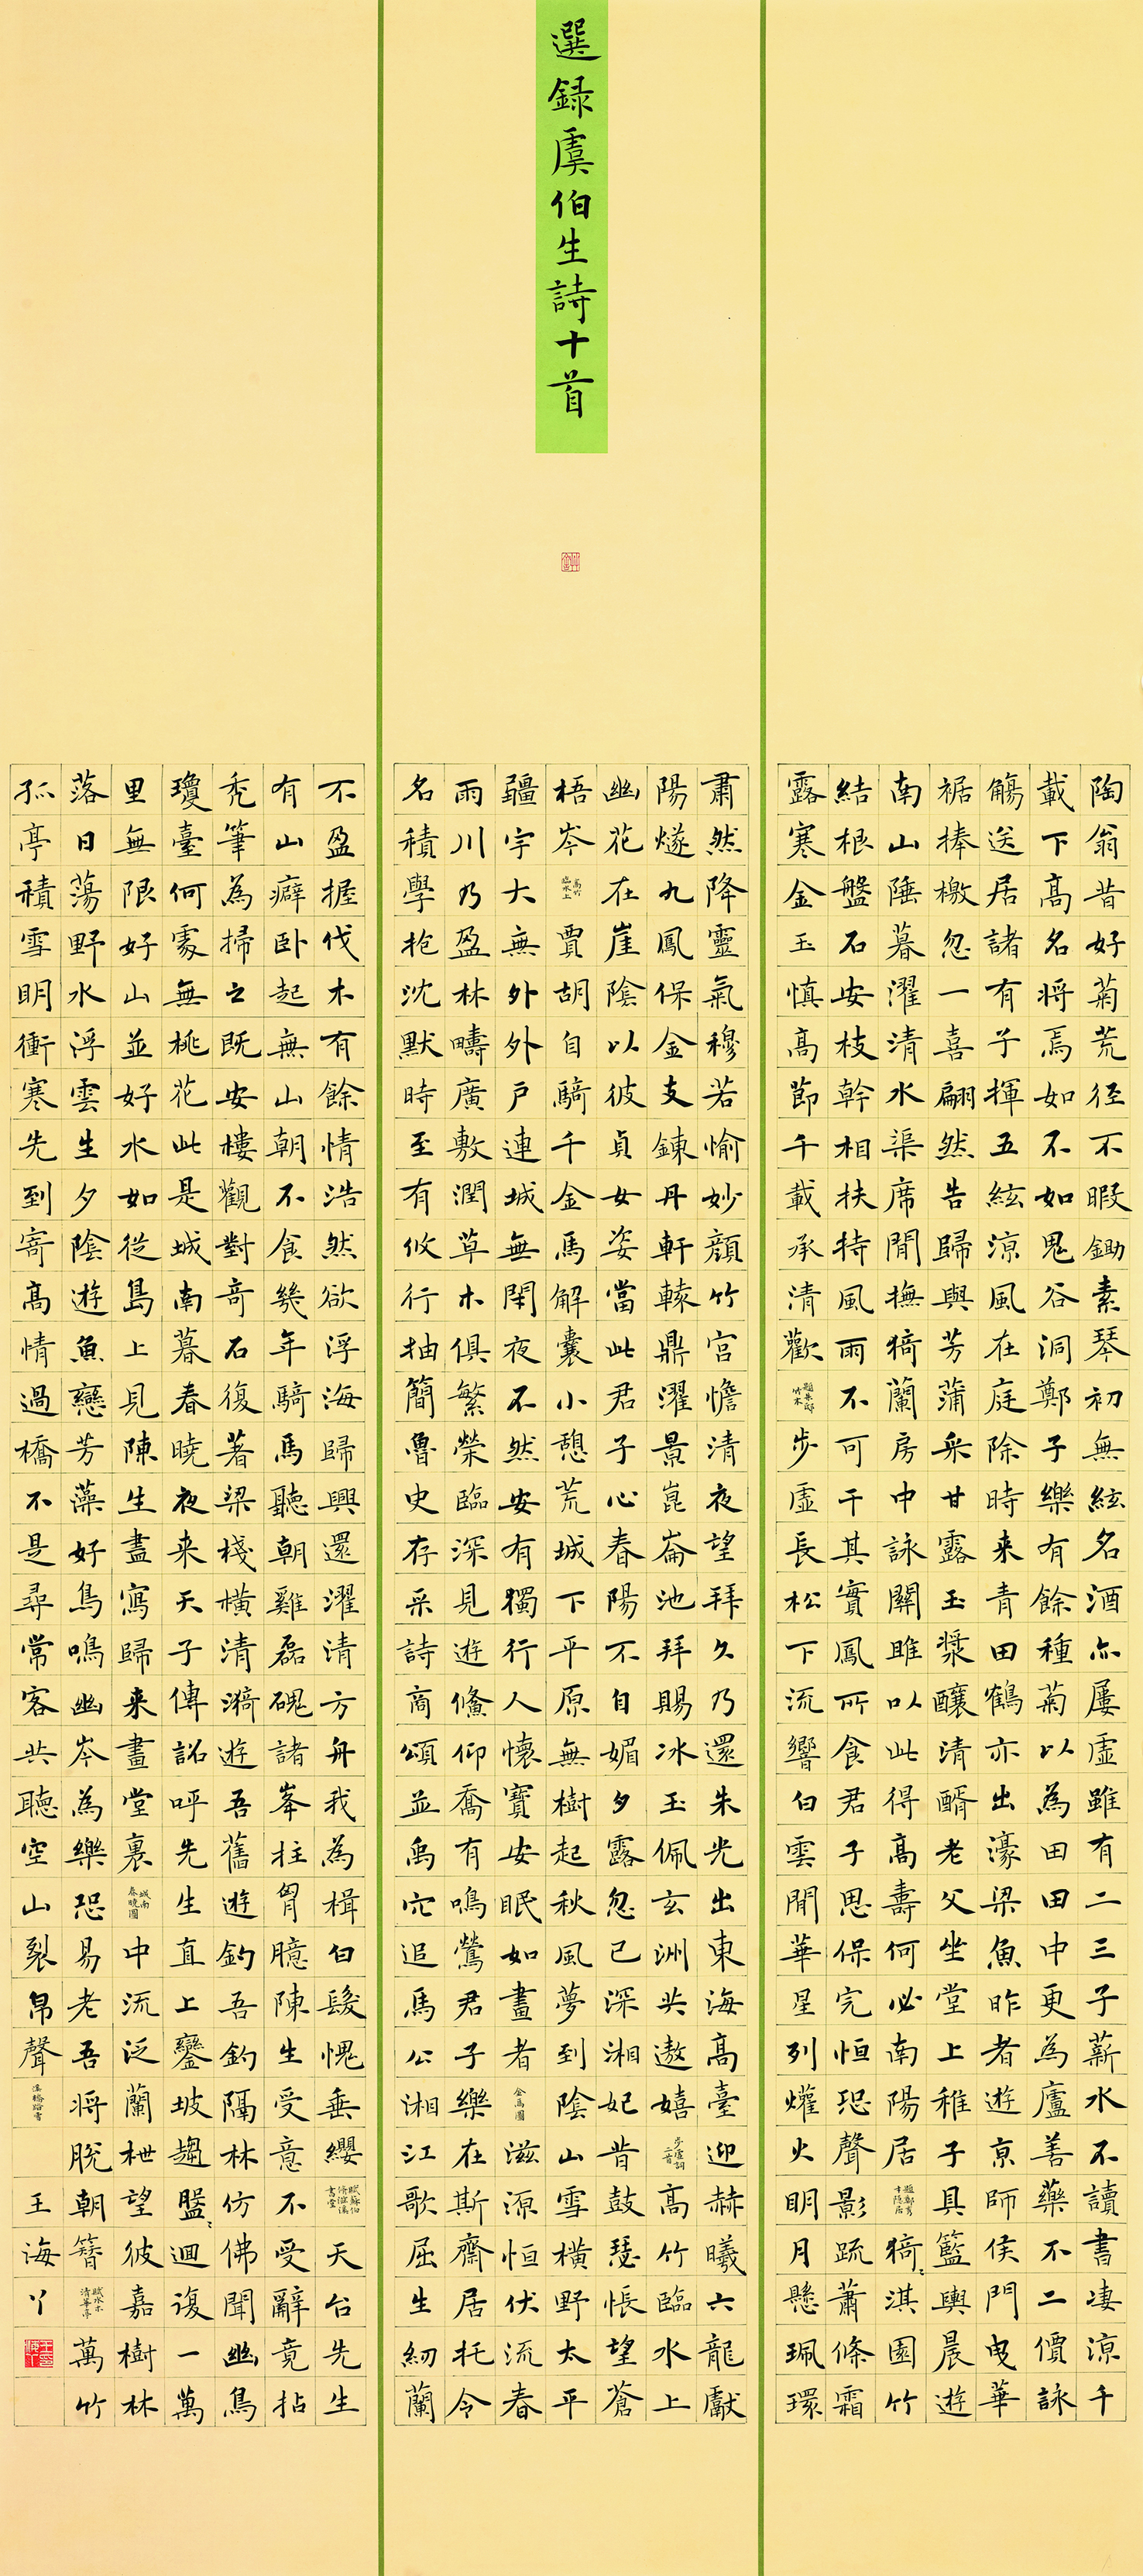 選錄虞伯生詩十首
陶翁昔好菊荒径不暇鋤素琴初無絃名酒亦屢虛雖有二三子薪水不讀書凄涼千
載下高名將焉如不如鬼谷洞鄭子樂有餘種菊以為田田中更為廬善藥不二價詠
觴送居諸有子揮五絃涼風在庭除時来青田鶴亦出濠梁魚昨者遊京師侯門曳華
裾捧檄忽一喜翩然告歸興芳蒲采甘露玉漿釀清醑老父坐堂上稚子具籃輿晨遊
南山陲暮濯清水渠席閒撫猗蘭房中詠關雎以此得高壽何必南陽居題鄭秀才隱居猗〻淇園竹
結根盤石安枝幹相扶持風雨不可干其實鳳所食君子思保完恒恐聲影疏蕭條霜
露寒金玉慎高節千載承清歡題朱邸竹木步虛長松下流響白雲間華星列爟火明月懸珮環
肅然降靈氣穆若愉妙顏竹宮憺清夜望拜久乃還朱光出東海高臺迎赫曦六龍獻
陽燧九鳳保金支鍊丹軒轅鼎濯景崑崙池拜賜冰玉佩玄洲共遨嬉步虛詞二首高竹臨水上
幽花在崖陰以彼貞女姿當此君子心春陽不自媚夕露忽已深湘妃昔鼓瑟悵望蒼
梧岑高竹臨水上賈胡自騎千金馬解囊小憩荒城下平原無樹起秋風夢到陰山雪橫野太平
疆宇大無外外戶連城無閑夜不然安有獨行人懷寶安眠如晝者金馬圖滋源恒伏流春
雨川乃盈林疇廣敷潤草木俱繁榮臨深見遊鯈仰喬有鳴鶯君子樂在斯齋居托令
名積學抱沈默時至有攸行抽簡魯史存采詩商頌並禹穴追馬公湘江歌屈生紉蘭
不盈握伐木有餘情浩然欲浮海歸興還濯清方舟我為楫白髮愧垂纓賦蘇伯脩滋溪書堂天台先生
有山癖卧起無山朝不食幾年騎馬聽朝雞磊磈諸峯拄胷臆陳生受意不受辭竟拈
禿筆為掃之既安樓觀對奇石復著梁棧橫清漪遊吾舊遊釣吾釣隔林仿佛聞幽鳥
瓊臺何處無桃花此是城南暮春曉夜来天子傳詔呼先生直上鑾坡趨盤〻迴復一萬
里無限好山並好水如從島上見陳生盡寫歸来畫堂裏城南春曉圖中流泛蘭枻望彼嘉樹林
落日蕩野水浮雲生夕陰遊魚戀芳藻好鳥鳴幽岑為樂恐易老吾將脫朝簪賦水木清華亭萬竹
孤亭積雪明衝寒先到寄高情過橋不是尋常客共聽空山裂帛聲溪橋踏雪王海丫